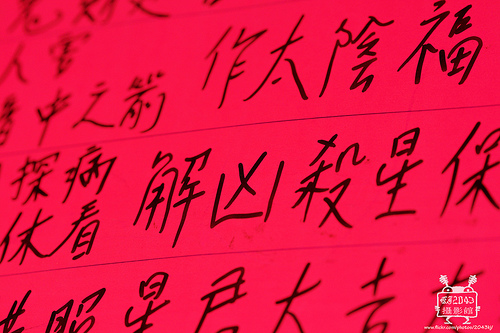 作太陰福
人雲
中之箭
探病
休看
解凶殺星保
照星君大吉
攝影館
www.flickr.com/photos/2043lj/